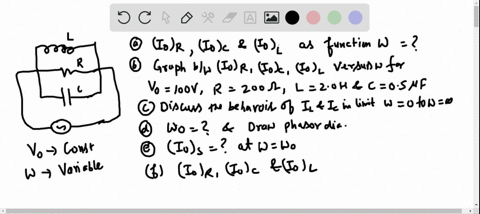 L
R
C
V₀ → Const
W → Variable
(a) (I₀)R, (I₀)C & (I₀)L as function W = ?
(b) Graph b/w (I₀)R, (I₀)C, (I₀)L Versus W for
V₀ = 100V, R = 200Ω, L = 2.0H & C = 0.5μF
(c) Discuss the behavior of IL & IC in limit W = 0 to W = ∞
(d) W₀ = ? & Draw phasor dia.
(e) (I₀)S = ? at W = W₀
(f) (I₀)R, (I₀)C & (I₀)L